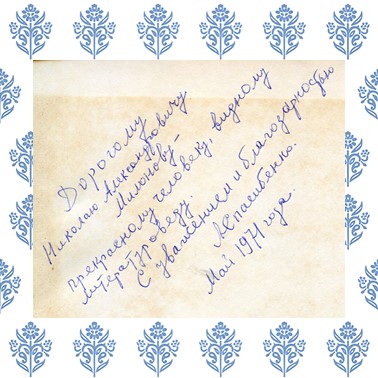 Дорогому
Николаю Александровичу
Милонову –
прекрасному человеку, видному
литературоведу.
С уважением и благодарностью
А. Спаейбенко.
Май 1971 года.